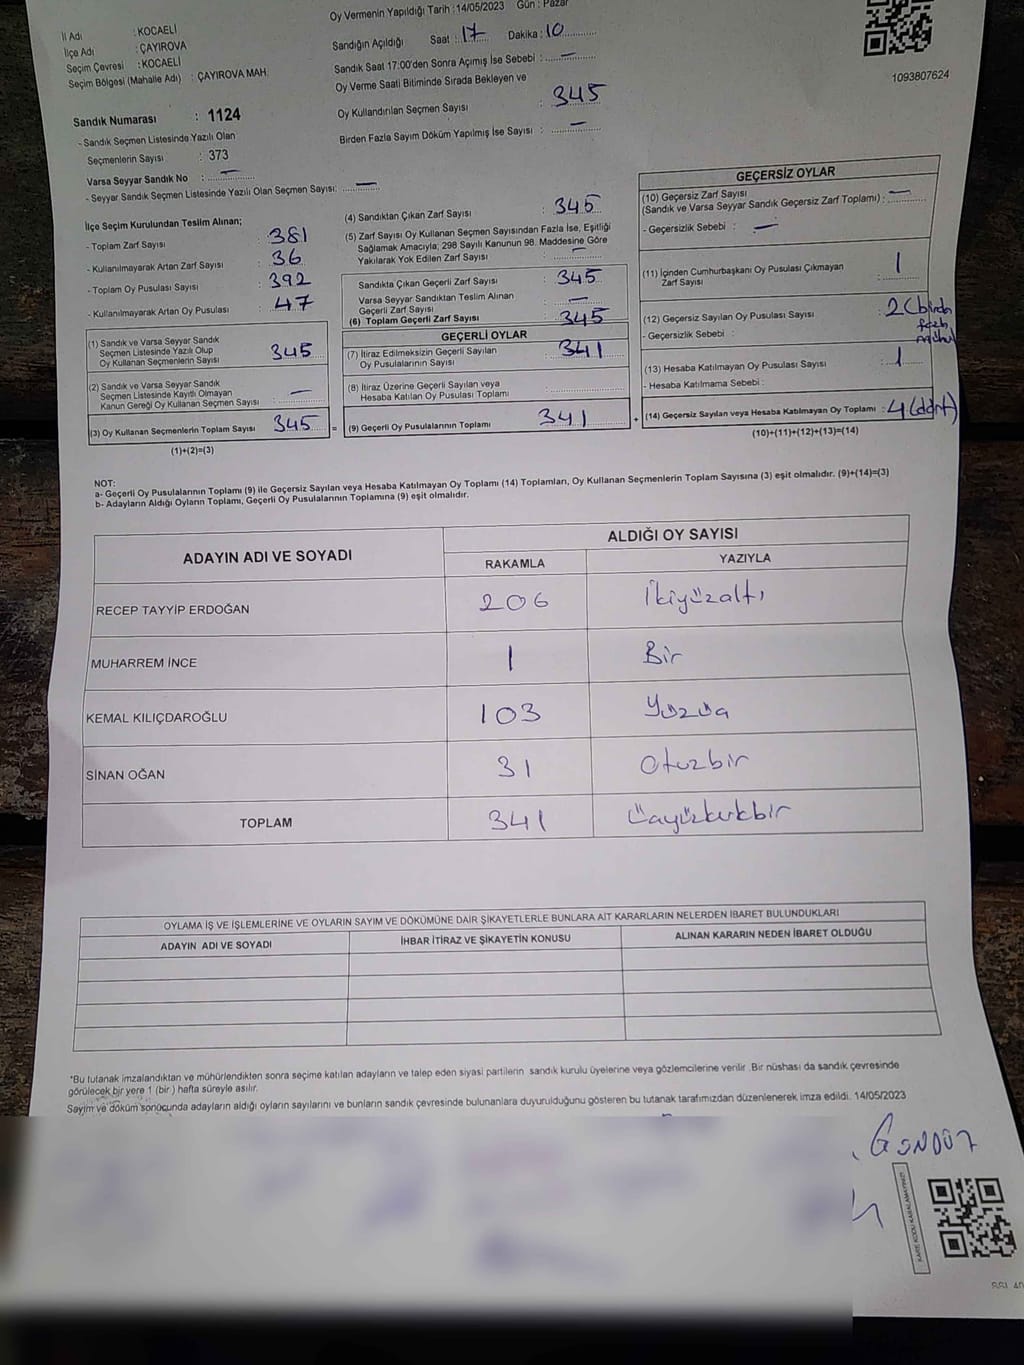 Oy Vermenin Yapıldığı Tarih :14/05/2023 Gün : Pazar
İl Adı : KOCAELİ
İlçe Adı : ÇAYIROVA
Seçim Çevresi : KOCAELİ
Seçim Bölgesi (Mahalle Adı) : ÇAYIROVA MAH.
Sandığın Açıldığı Saat : 17 Dakika : 10
Sandık Saat 17:00'den Sonra Açımış İse Sebebi : —
Oy Verme Saati Bitiminde Sırada Bekleyen ve
Oy Kullandırılan Seçmen Sayısı : 345
Birden Fazla Sayım Döküm Yapılmış İse Sayısı : —
1093807624
Sandık Numarası : 1124
- Sandık Seçmen Listesinde Yazılı Olan
Seçmenlerin Sayısı : 373
Varsa Seyyar Sandık No : —
- Seyyar Sandık Seçmen Listesinde Yazılı Olan Seçmen Sayısı: —
İlçe Seçim Kurulundan Teslim Alınan;
- Toplam Zarf Sayısı : 381
- Kullanılmayarak Artan Zarf Sayısı : 36
- Toplam Oy Pusulası Sayısı : 392
- Kullanılmayarak Artan Oy Pusulası : 47
(1) Sandık ve Varsa Seyyar Sandık
Seçmen Listesinde Yazılı Olup
Oy Kullanan Seçmenlerin Sayısı : 345
(2) Sandık ve Varsa Seyyar Sandık
Seçmen Listesinde Kayıtlı Olmayan
Kanun Gereği Oy Kullanan Seçmen Sayısı : —
(3) Oy Kullanan Seçmenlerin Toplam Sayısı : 345 =
(1)+(2)=(3)
(4) Sandıktan Çıkan Zarf Sayısı : 345
(5) Zarf Sayısı Oy Kullanan Seçmen Sayısından Fazla İse, Eşitliği
Sağlamak Amacıyla; 298 Sayılı Kanunun 98. Maddesine Göre
Yakılarak Yok Edilen Zarf Sayısı : —
Sandıkta Çıkan Geçerli Zarf Sayısı : 345
Varsa Seyyar Sandıktan Teslim Alınan
Geçerli Zarf Sayısı : —
(6) Toplam Geçerli Zarf Sayısı : 345
GEÇERLİ OYLAR
(7) İtiraz Edilmeksizin Geçerli Sayılan
Oy Pusulalarının Sayısı : 341
(8) İtiraz Üzerine Geçerli Sayılan veya
Hesaba Katılan Oy Pusulası Toplamı :
(9) Geçerli Oy Pusulalarının Toplamı : 341 +
GEÇERSİZ OYLAR
(10) Geçersiz Zarf Sayısı
(Sandık ve Varsa Seyyar Sandık Geçersiz Zarf Toplamı) : —
- Geçersizlik Sebebi : —
(11) İçinden Cumhurbaşkanı Oy Pusulası Çıkmayan
Zarf Sayısı : 1
(12) Geçersiz Sayılan Oy Pusulası Sayısı : 2 (birden
- Geçersizlik Sebebi : fazla
mühür
(13) Hesaba Katılmayan Oy Pusulası Sayısı : 1
- Hesaba Katılmama Sebebi :
(14) Geçersiz Sayılan veya Hesaba Katılmayan Oy Toplamı : 4 (dört)
(10)+(11)+(12)+(13)=(14)
NOT:
a- Geçerli Oy Pusulalarının Toplamı (9) ile Geçersiz Sayılan veya Hesaba Katılmayan Oy Toplamı (14) Toplamları, Oy Kullanan Seçmenlerin Toplam Sayısına (3) eşit olmalıdır. (9)+(14)=(3)
b- Adayların Aldığı Oyların Toplamı, Geçerli Oy Pusulalarının Toplamına (9) eşit olmalıdır.
ADAYIN ADI VE SOYADI ALDIĞI OY SAYISI
RAKAMLA YAZIYLA
RECEP TAYYİP ERDOĞAN 206 İkiyüzaltı
MUHARREM İNCE 1 Bir
KEMAL KILIÇDAROĞLU 103 Yüzüç
SİNAN OĞAN 31 Otuzbir
TOPLAM 341 Üçyüzkırkbir
OYLAMA İŞ VE İŞLEMLERİNE VE OYLARIN SAYIM VE DÖKÜMÜNE DAİR ŞİKAYETLERLE BUNLARA AİT KARARLARIN NELERDEN İBARET BULUNDUKLARI
ADAYIN ADI VE SOYADI İHBAR İTİRAZ VE ŞİKAYETİN KONUSU ALINAN KARARIN NEDEN İBARET OLDUĞU
*Bu tutanak imzalandıktan ve mühürlendikten sonra seçime katılan adayların ve talep eden siyasi partilerin sandık kurulu üyelerine veya gözlemcilerine verilir .Bir nüshası da sandık çevresinde
görülecek bir yere 1 (bir ) hafta süreyle asılır.
Sayım ve döküm sonucunda adayların aldığı oyların sayılarını ve bunların sandık çevresinde bulunanlara duyurulduğunu gösteren bu tutanak tarafımızdan düzenlenerek imza edildi. 14/05/2023
GÜNDÜZ
KARE KODU KARALAMAYINIZ!